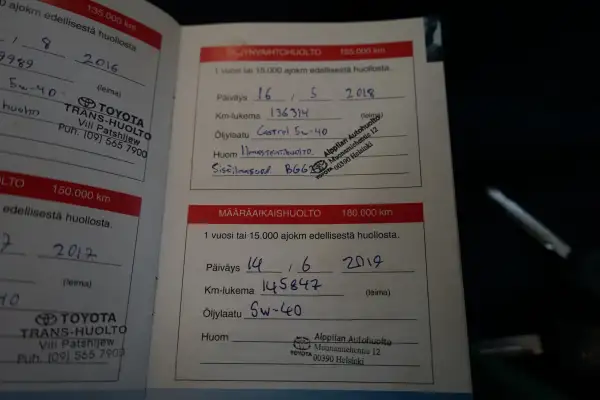 135.000 km
ajokm edellisestä huollosta.
8 2016
9989
5w-40
(leima)
TOYOTA
TRANS-HUOLTO
Vili Patshijew
Puh. (09) 565 7900
150.000 km
edellisestä huollosta.
2017
(leima)
TOYOTA
TRANS-HUOLTO
Vili Patshijew
Puh. (09) 565 7900
165.000 km
1 vuosi tai 15.000 ajokm edellisestä huollosta.
Päiväys 16 / 5 2018
Km-lukema 136314
(leima)
Öljylaatu Castrol 5w-40
Huom
Alppilan Autohuolto
Muonamiehentie 12
00390 Helsinki
TOYOTA
MÄÄRÄAIKAISHUOLTO 180.000 km
1 vuosi tai 15.000 ajokm edellisestä huollosta.
Päiväys 14 / 6 2019
Km-lukema 145847
(leima)
Öljylaatu 5w-40
Huom
Alppilan Autohuolto
Muonamiehentie 12
TOYOTA 00390 Helsinki